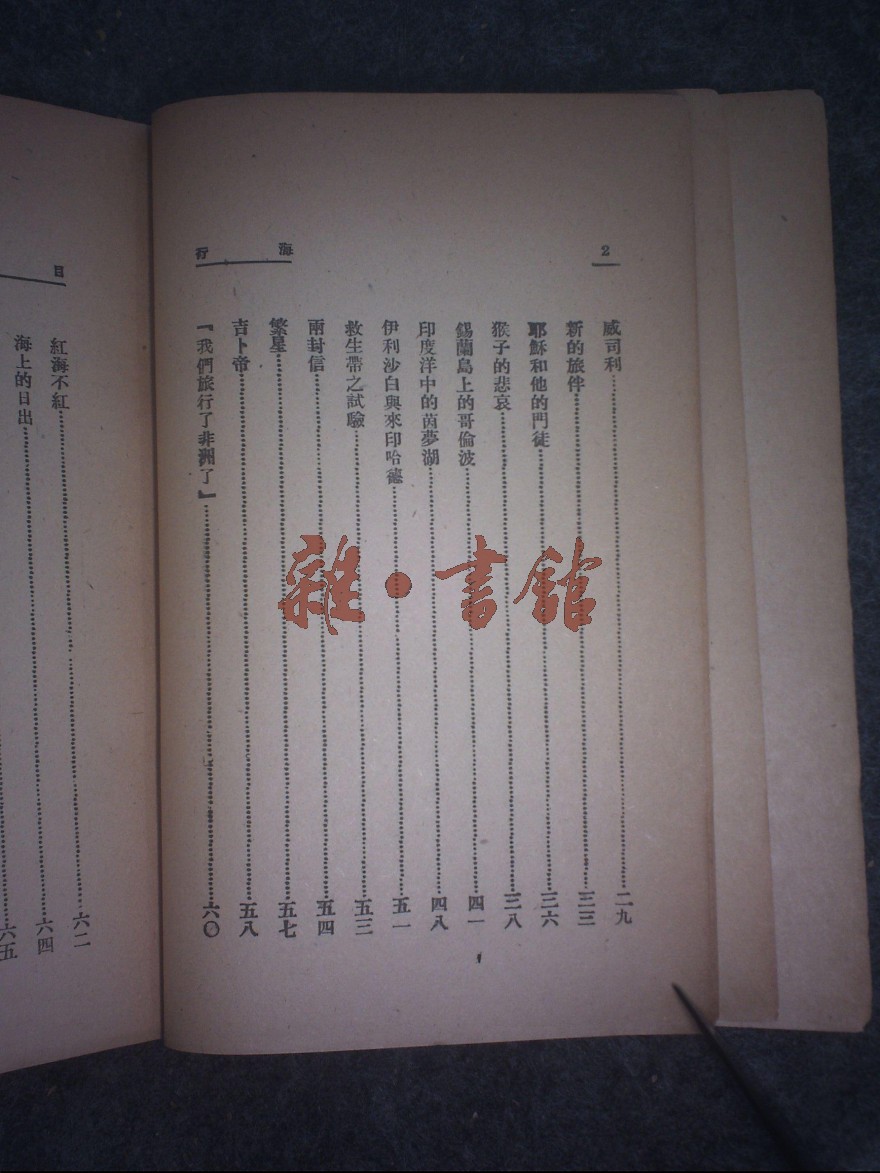 2
海行
威司利……二九
新的旅伴……三三
耶穌和他的門徒……三六
猴子的悲哀……三八
錫蘭島上的哥倫波……四一
印度洋中的茵夢湖……四八
伊利沙白與來印哈德……五一
救生帶之試驗……五三
兩封信……五四
繁星……五七
吉卜帝……五八
『我們旅行了非洲了』……六〇
目
紅海不紅……六二
海上的日出……六四
六五
雜·書館